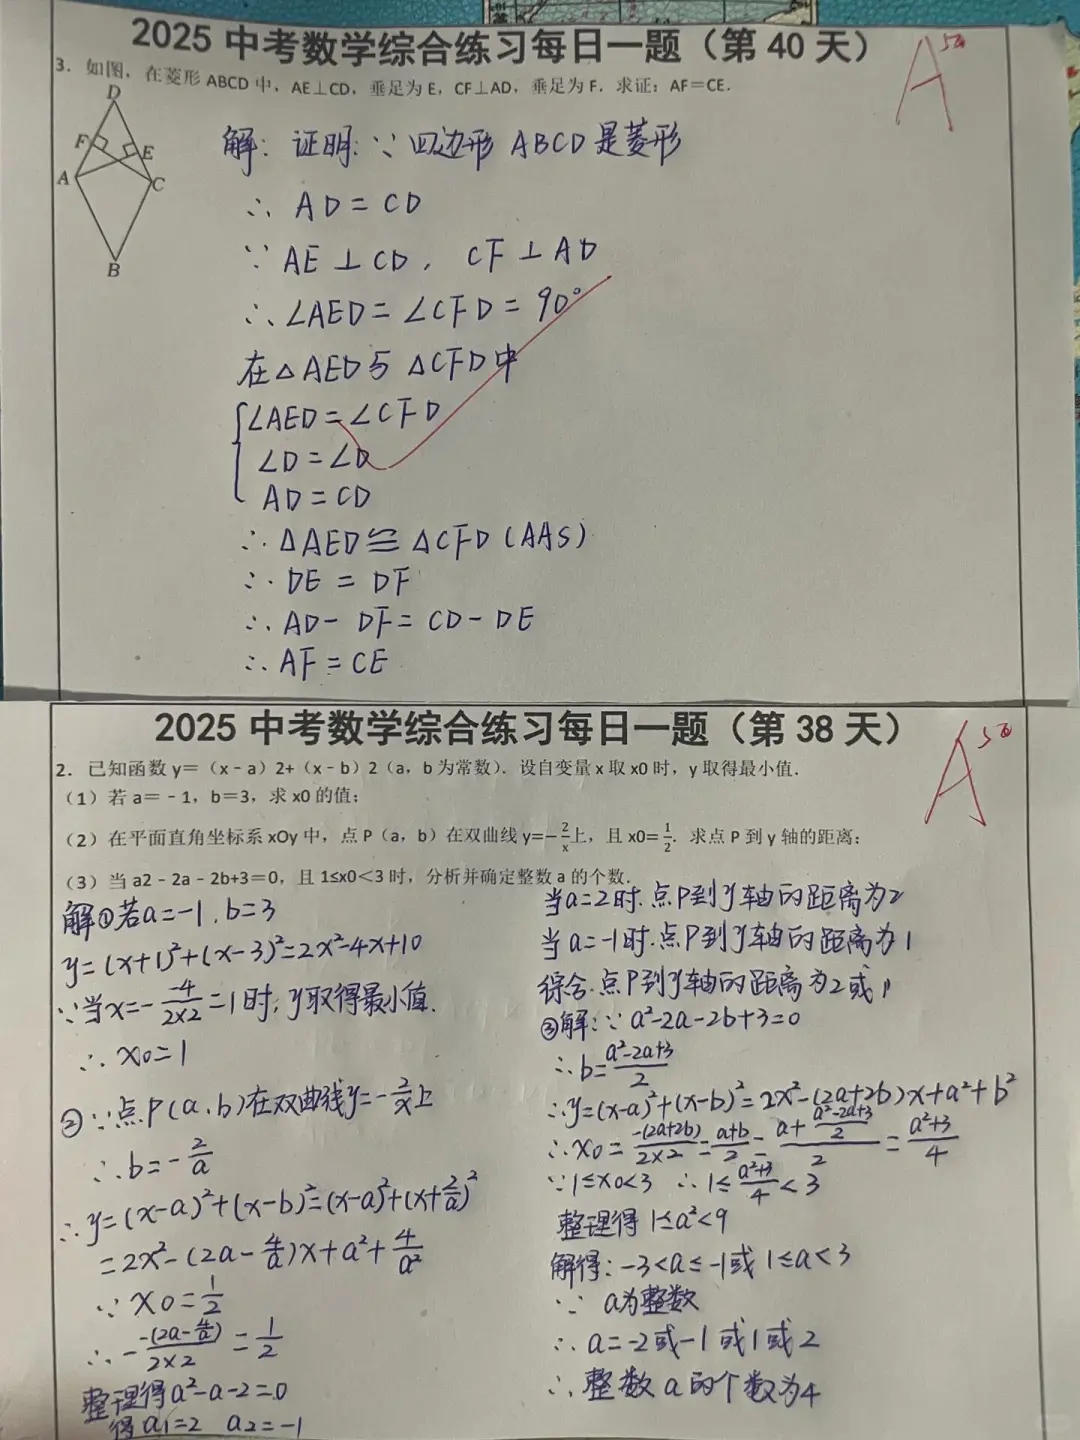 2025 中考数学综合练习每日一题（第 40 天）
A
3．如图，在菱形 ABCD 中，AE⊥CD，垂足为 E，CF⊥AD，垂足为 F．求证：AF=CE．
D
F
E
A
C
B
解：证明：∵ 四边形 ABCD 是菱形
∴ AD = CD
∵ AE⊥CD，CF⊥AD
∴ ∠AED = ∠CFD = 90°
在△AED与△CFD中
∠AED = ∠CFD
∠D = ∠D
AD = CD
∴ △AED ≌ △CFD (AAS)
∴ DE = DF
∴ AD - DF = CD - DE
∴ AF = CE
2025 中考数学综合练习每日一题（第 38 天）
A
2．已知函数 y＝（x﹣a）2+（x﹣b）2（a，b 为常数）．设自变量 x 取 x0 时，y 取得最小值．
（1）若 a＝﹣1，b＝3，求 x0 的值；
（2）在平面直角坐标系 xOy 中，点 P（a，b）在双曲线 y=−2/x上，且 x0=1/2．求点 P 到 y 轴的距离；
（3）当 a2﹣2a﹣2b+3＝0，且 1≤x0＜3 时，分析并确定整数 a 的个数．
解①若a=-1, b=3
y=(x+1)²+(x-3)²=2x²-4x+10
∵当x=- -4/2×2 =1时，y取得最小值.
∴ x0=1
②∵点P(a,b)在双曲线y=-2/x上
∴b=-2/a
∴y=(x-a)²+(x-b)²=(x-a)²+(x+2/a)²
=2x²-(2a-4/a)x+a²+4/a²
∵ x0=1/2
∴ - -(2a-4/a)/2×2 = 1/2
整理得a²-a-2=0
得a1=2 a2=-1
当a=2时.点P到y轴的距离为2
当a=-1时.点P到y轴的距离为1
综合.点P到y轴的距离为2或1
③解:∵a²-2a-2b+3=0
∴b=a²-2a+3/2
∴y=(x-a)²+(x-b)²=2x²-(2a+2b)x+a²+b²
∴x0= -(2a+2b)/2×2 = a+b/2 = a+ a²-2a+3/2 /2 = a²+3/4
∵1≤x0<3 ∴1≤a²+3/4<3
整理得1≤a²<9
解得:-3<a≤-1或1≤a<3
∵ a为整数
∴ a=-2或-1或1或2
∴ 整数a的个数为4